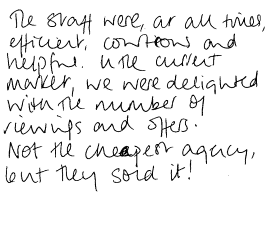 The staff were, at all times,
efficient, courteous and
helpful. In the current
market, we were delighted
with the number of
viewings and offers.
Not the cheapest agency,
but they sold it!